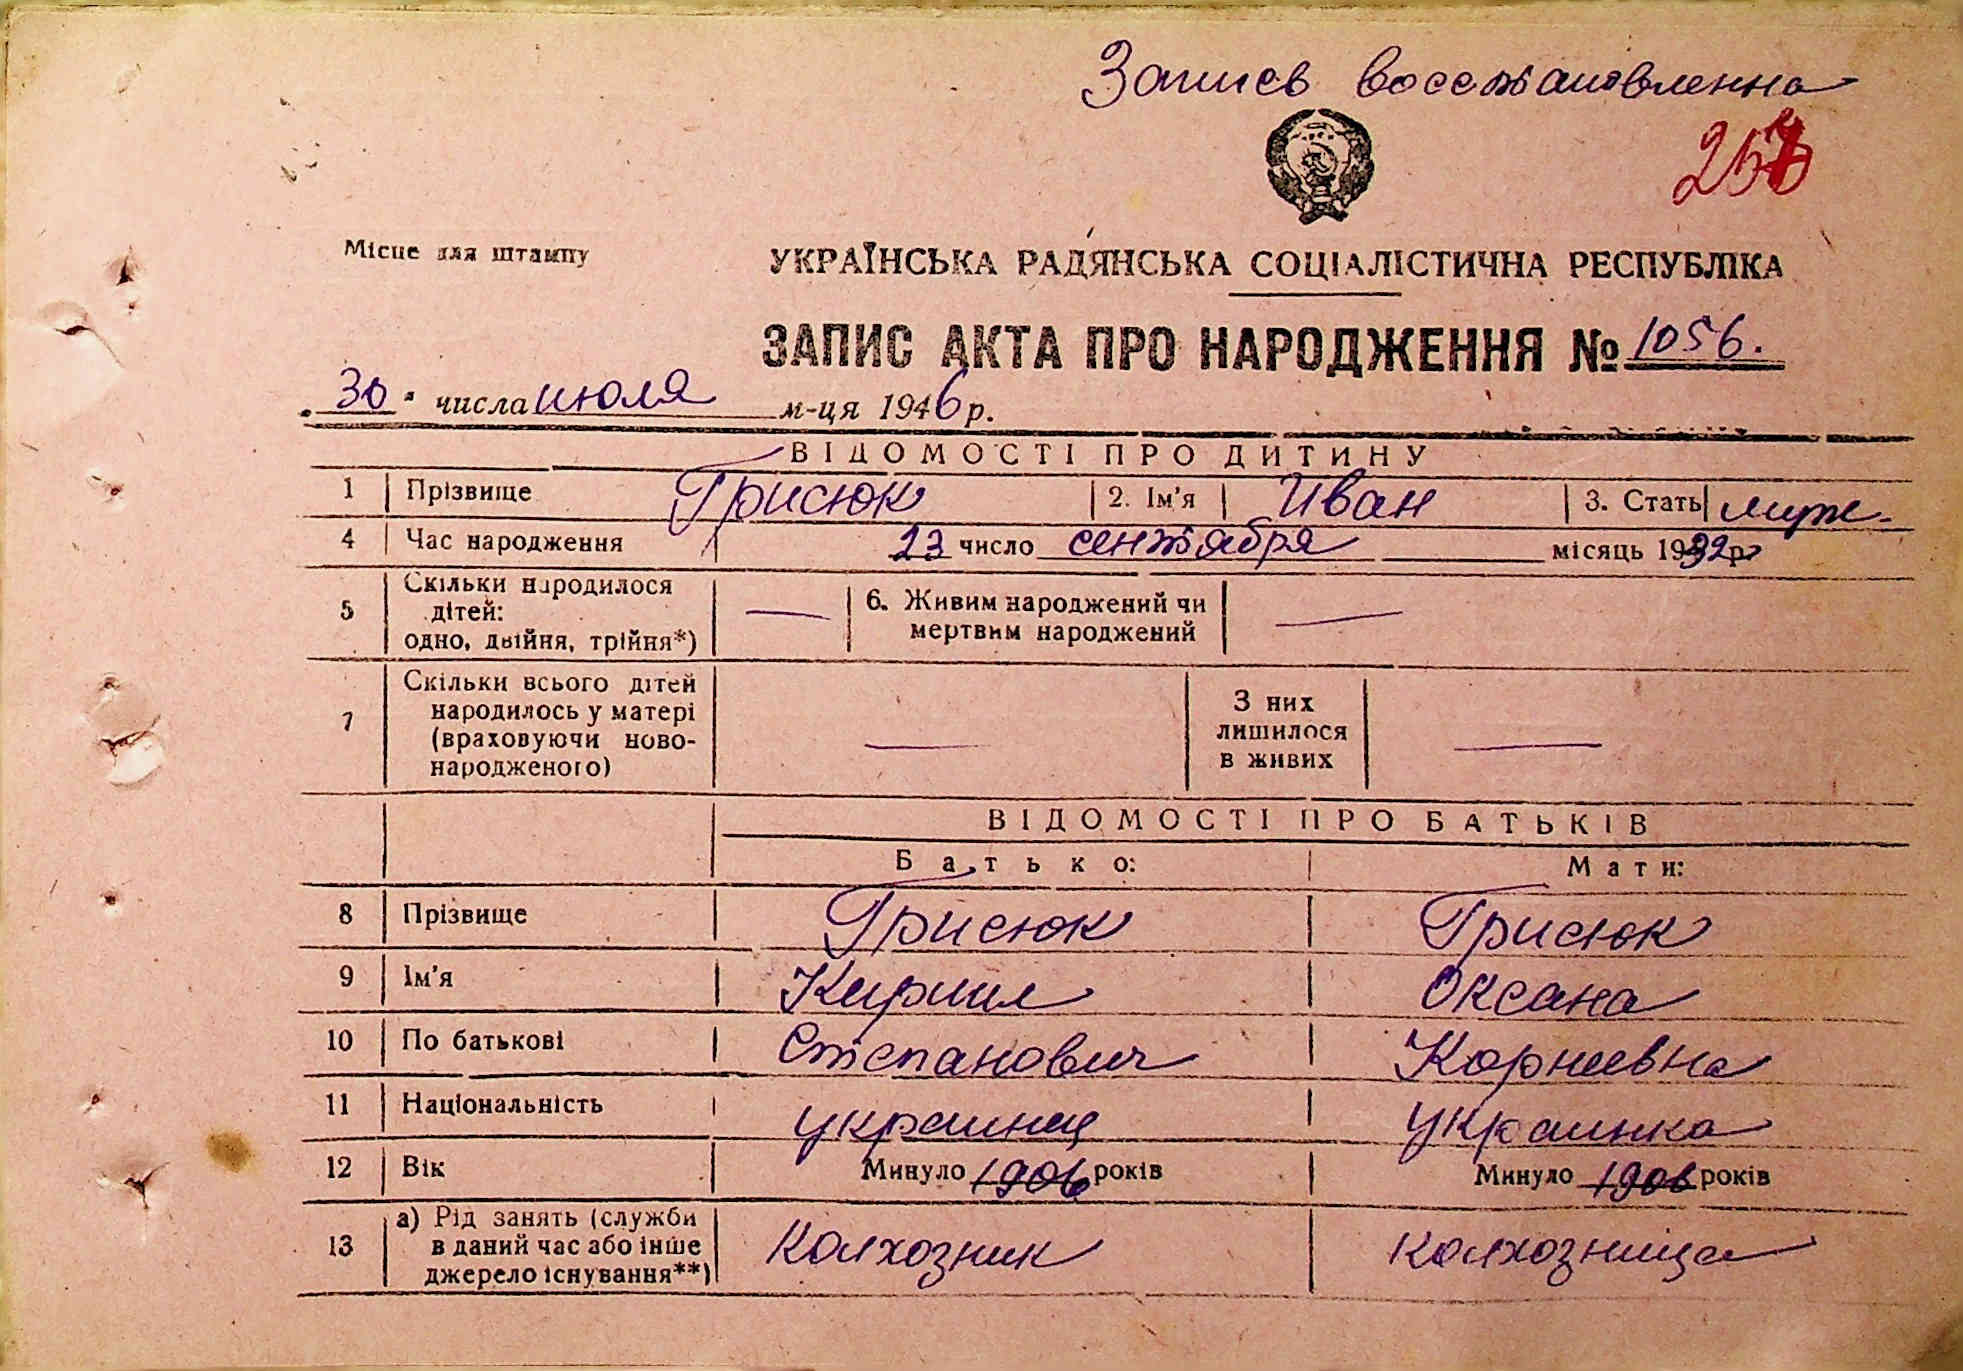 Запись восстановленна
257
Місце для штампу
УКРАЇНСЬКА РАДЯНСЬКА СОЦІАЛІСТИЧНА РЕСПУБЛІКА
ЗАПИС АКТА ПРО НАРОДЖЕННЯ № 1056.
"30" числа июля м-ця 1946 р.
ВІДОМОСТІ ПРО ДИТИНУ
1 Прізвище Грисюк 2. Ім'я Иван 3. Стать муж.
4 Час народження 23 число сентября місяць 1932 р.
5 Скільки народилося дітей: одно, двійня, трійня*) — 6. Живим народжений чи мертвим народжений —
7 Скільки всього дітей народилось у матері (враховуючи ново-народженого) — З них лишилося в живих —
ВІДОМОСТІ ПРО БАТЬКІВ
Батько: Мати:
8 Прізвище Грисюк Грисюк
9 Ім'я Кирилл Оксана
10 По батькові Степанович Корнеевна
11 Національність украинец украинка
12 Вік Минуло 1906 років Минуло 1906 років
13 а) Рід занять (служби в даний час або інше джерело існування**) Колхозник колхозница